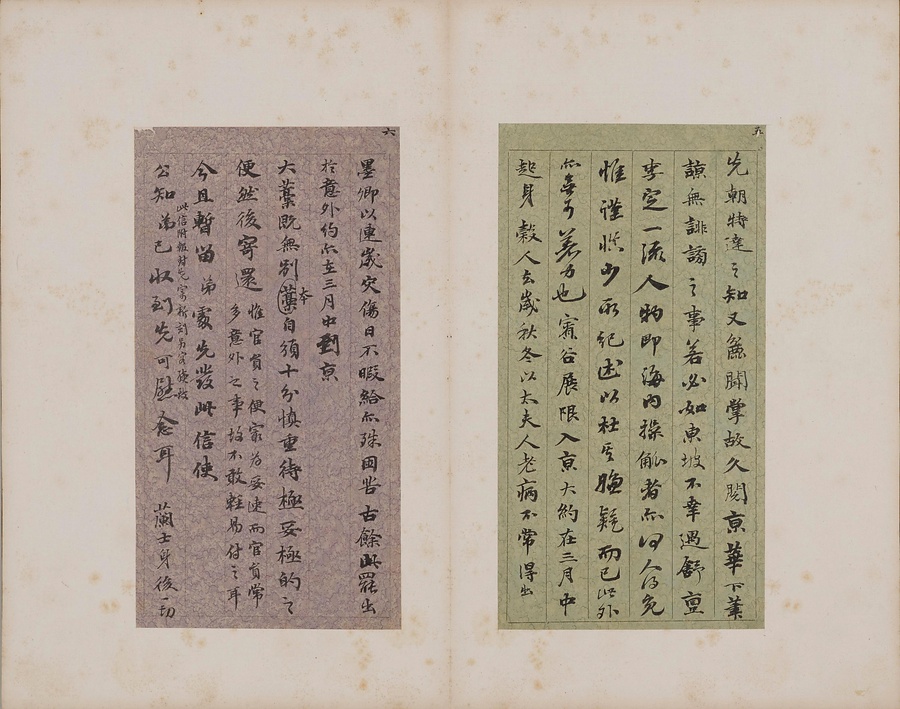 五
先朝特達之知又無關掌故久閱京華下筆
諒無誹謗之事若必如東坡不幸遇舒亶
李定一流人物即海內操觚者亦何人得免
惟謹慎少所紀述以杜其嫌疑而已此外
亦無可着力也 甯谷展限入京大約在三月中
起身 穀人去歲秋冬以太夫人老病不常得出
六
墨卿以連歲灾傷日不暇給亦殊困苦古餘此罷出
於意外約亦在三月中到京
大藁既無別本藁自須十分慎重待極妥極的之
便然後寄還 惟官員之便寂為妥速而官員常
多意外之事故不敢輕易付之耳
今且暫留弟處先發此信使
此信附報封乞
公知藁已收到先可慰念耳 蘭士身後一切